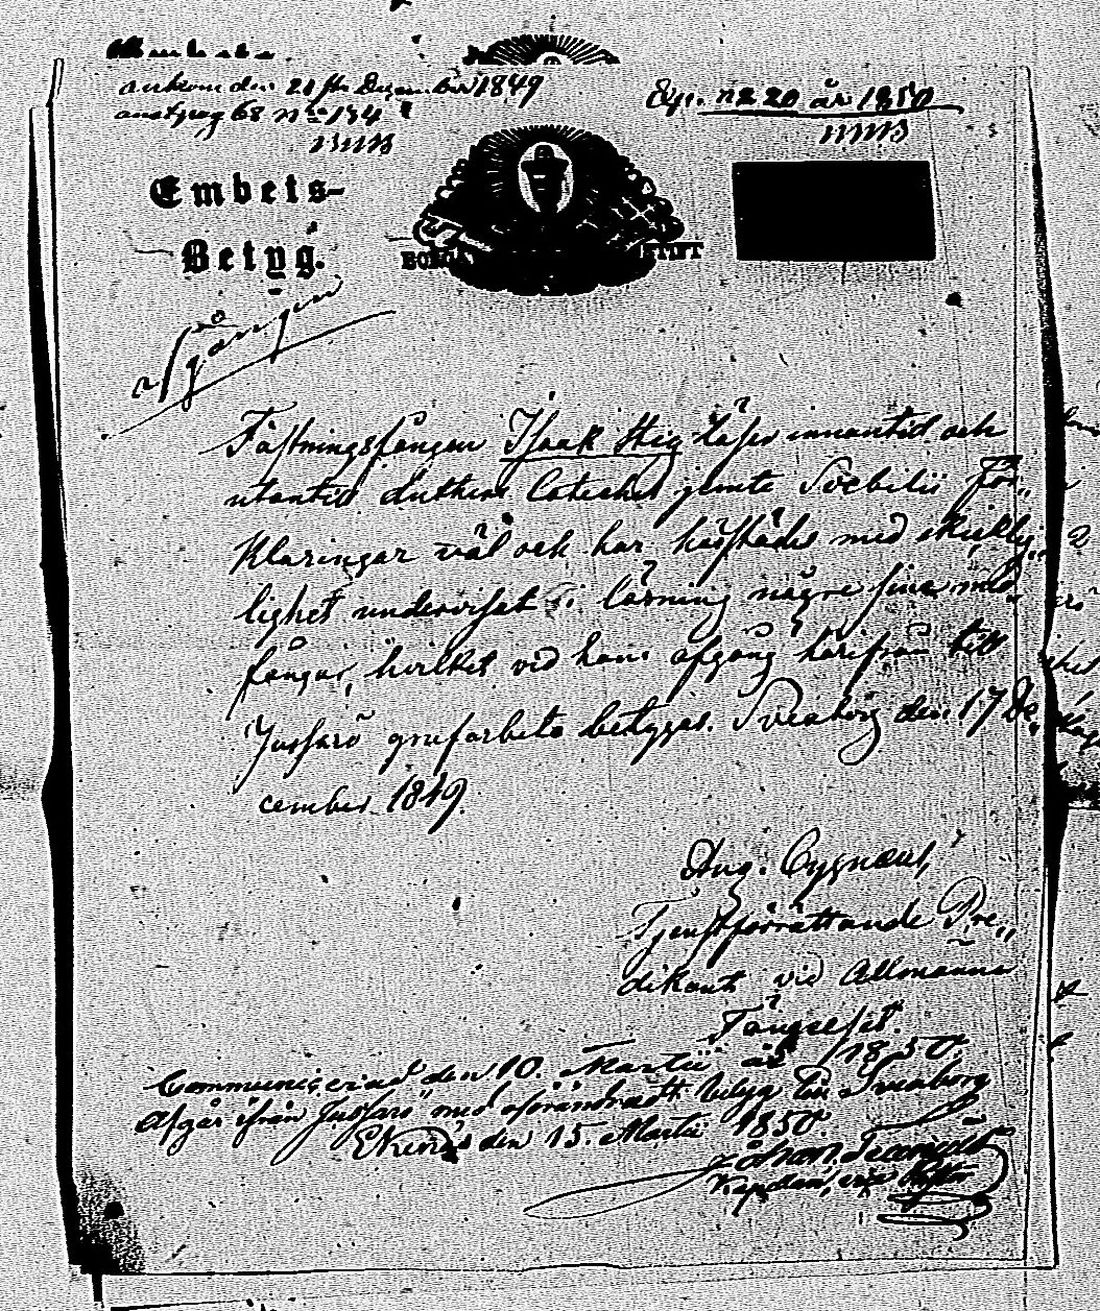 ankom den 21ste December 1849
pag 68 No 134
Exp. No 220 år 1850
Embets-
Betyg.
BORGÅ STIFT
Fången
Fästningsfången Isaak Stig läser innantid och
utantid Lutheri Cateches jemte Svebilii För„
klaringar väl och har härstädes med skickly„
lighet undervisat i läsning några sina med„
fångar, hvilket vid hans afgång härifrån till
Jussarö grufarbete betygas. Sveaborg den 17 De„
cember 1849.
Aug. Cygnæus,
Tjenstförrättande Pre„
dikant vid Allmänna
Fängelset.
Communicerad den 10. Martii år 1850.
Afgår ifrån Jussarö med oförändradt betyg till Sveaborg
Ekenäs den 15. Martii 1850.
Johan